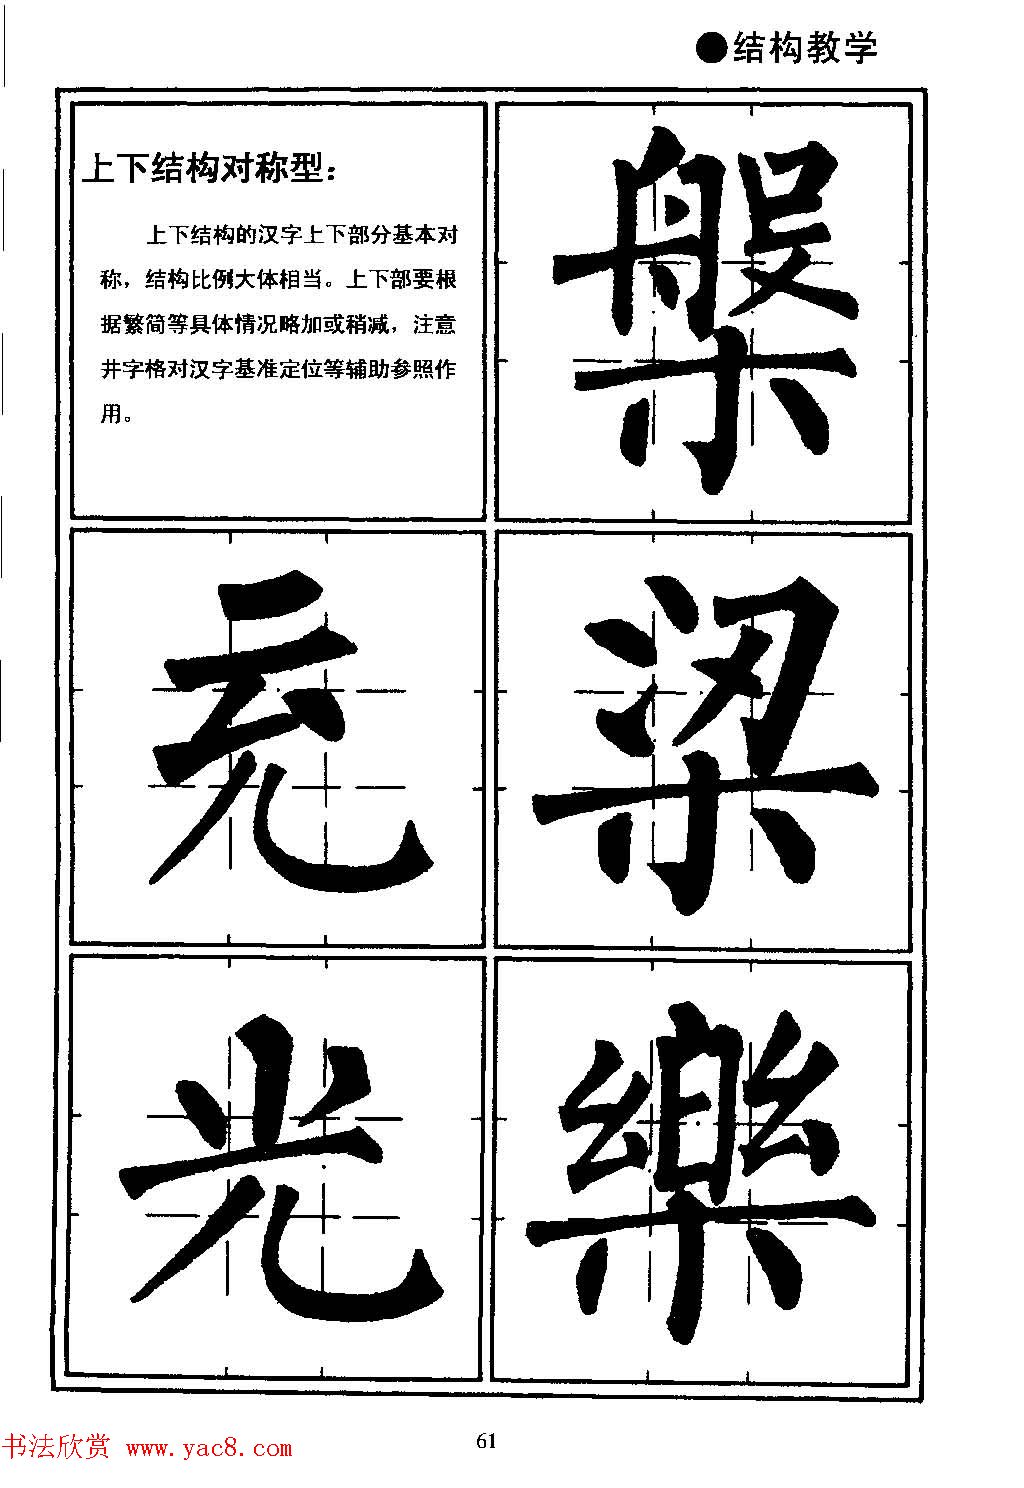 ●结构教学
上下结构对称型：
上下结构的汉字上下部分基本对
称，结构比例大体相当。上下部要根
据繁简等具体情况略加或稍减，注意
井字格对汉字基准定位等辅助参照作
用。
槃
充
梁
光
樂
书法欣赏 www.yac8.com
61